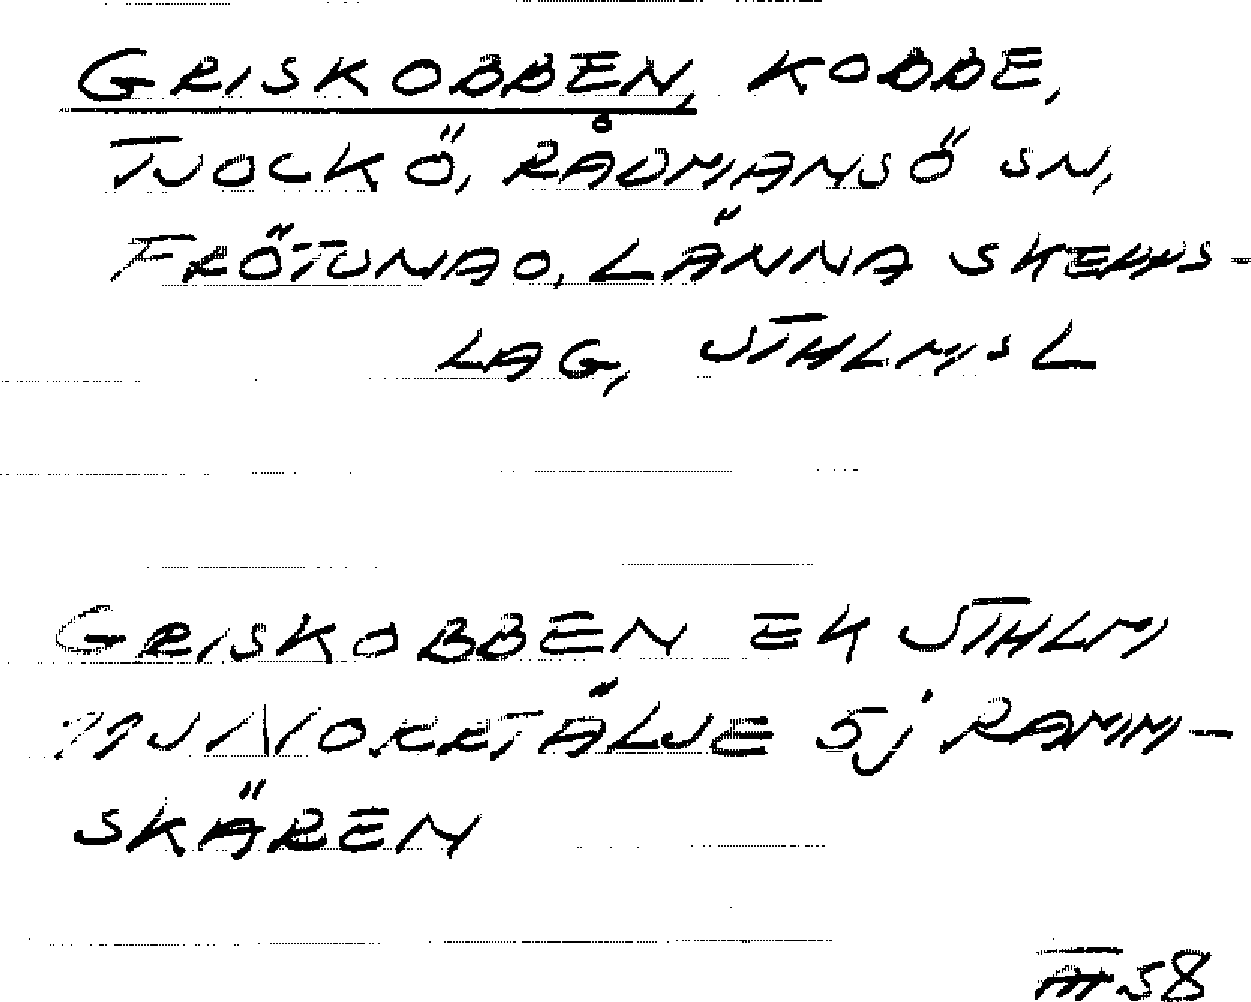 GRISKOBBEN, KOBBE,
TJOCKÖ, RÅDMANSÖ SN,
FRÖTUNA O. LÄNNA SKEPPS-
LAG, STHLMS L
GRISKOBBEN EK STHLM
11J NORRTÄLJE 5j RAMM-
SKÄREN
58